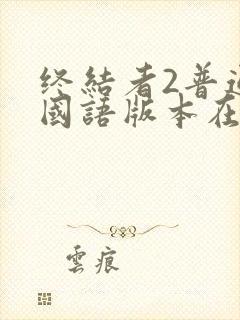 终結者2普
國語版本在
雲痕